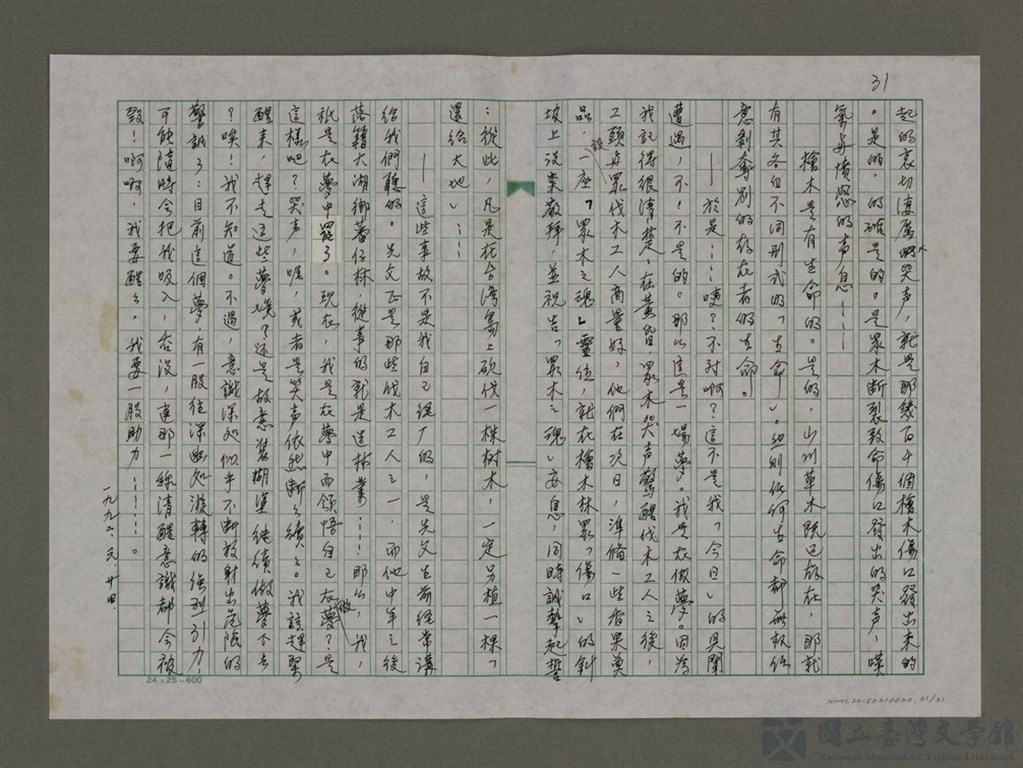 31
起的哀切淒厲哭声，就是那幾百千個檜木傷口發出來的
。是的，的確是的。是眾木断裂致命傷口發出的哭声，嘆
氣与憤怒的声息……
檜木是有生命的。是的，山川草木既已存在，那就
有其各自不同形式的「生命」。否則任何生命都無权任
意剝奪別的存在者的生命。
——於是……咦？不对啊？這不是我「今日」的見聞
遭遇，不！不是的。那么這是一場夢。我是在做夢。因為
我記得很清楚，在黃昏眾木哭声驚醒伐木工人之後，
工頭与眾伐木工人商量好，他們在次日，準備一些香果奠
品，設一座「眾木之魂」靈位，就在檜木林眾「傷口」的斜
坡上設案敬拜，並祝告「眾木之魂」安息，同時誠摯起誓
：從此，凡是在台湾島上砍伐一株樹木，一定另植一棵，
還給大地」……
——這些事故不是我自己經厂的，是先父生前經常講
給我們聽的。先父正是那些伐木工人之一，而他中年之後
落籍大湖鄉蕃仔林，從事的就是造林業……！那么，我，
祇是在夢中罷了。現在，我是在夢中而領悟自己在做夢？是
這樣吧？哭声，喔，或者是笑声依然断断續續。我該趕緊
醒來，趕走這些夢境？还是故意裝糊塗繼續做夢下去
？唉！我不知道。不過，意識深処似乎不断放射出危險的
警訊了：目前這個夢，有一股往深幽処漩轉的強烈引力，
可能隨時会把我吸入，吞沒，連那一絲清醒意識都会被
毀！啊啊，我要醒醒。我要一股助力……。
一九九二、元、廿日、
24×25=600
NMTL20150210020, 31/31
國立臺灣文學館
National Museum of Taiwan Literature